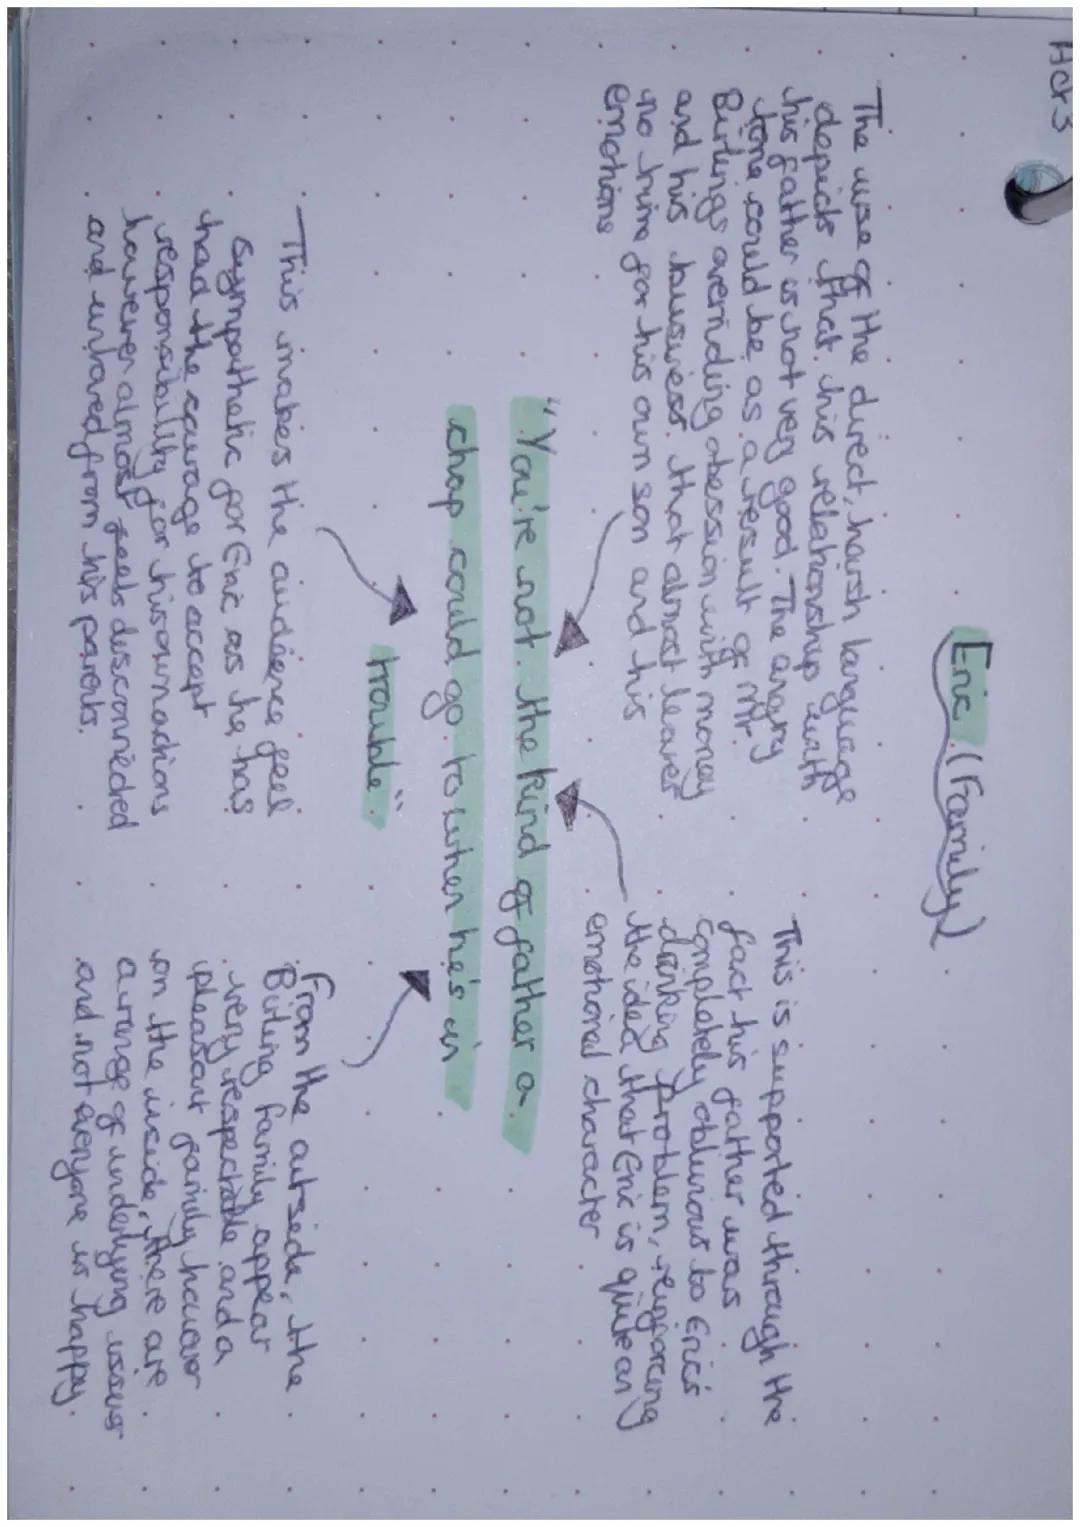 Act 3
Eric (Family)
The use of the direct, harsh language
depicts that his relationship with
his father is not very good. The angry
tone could be as a result of Mr
Birlings overriding obession with money
and his business that almost leaves
no time for his own son and his
emotions
This is supported through the
fact his father was
completely oblivious to Eric's
drinking problem, reinforcing
the idea that Eric is quite an
emotional character
"You're not the kind of father a
chap could go to when he's in
trouble"
This makes the audience feel
sympathetic for Eric as he has
had the courage to accept
responsibility for his own actions
however almost feels disconnected
and unloved from his parents.
From the outside, the
Birling family appear
very respectable and a
pleasant family however
on the inside, there are
a range of underlying issues
and not everyone is happy.